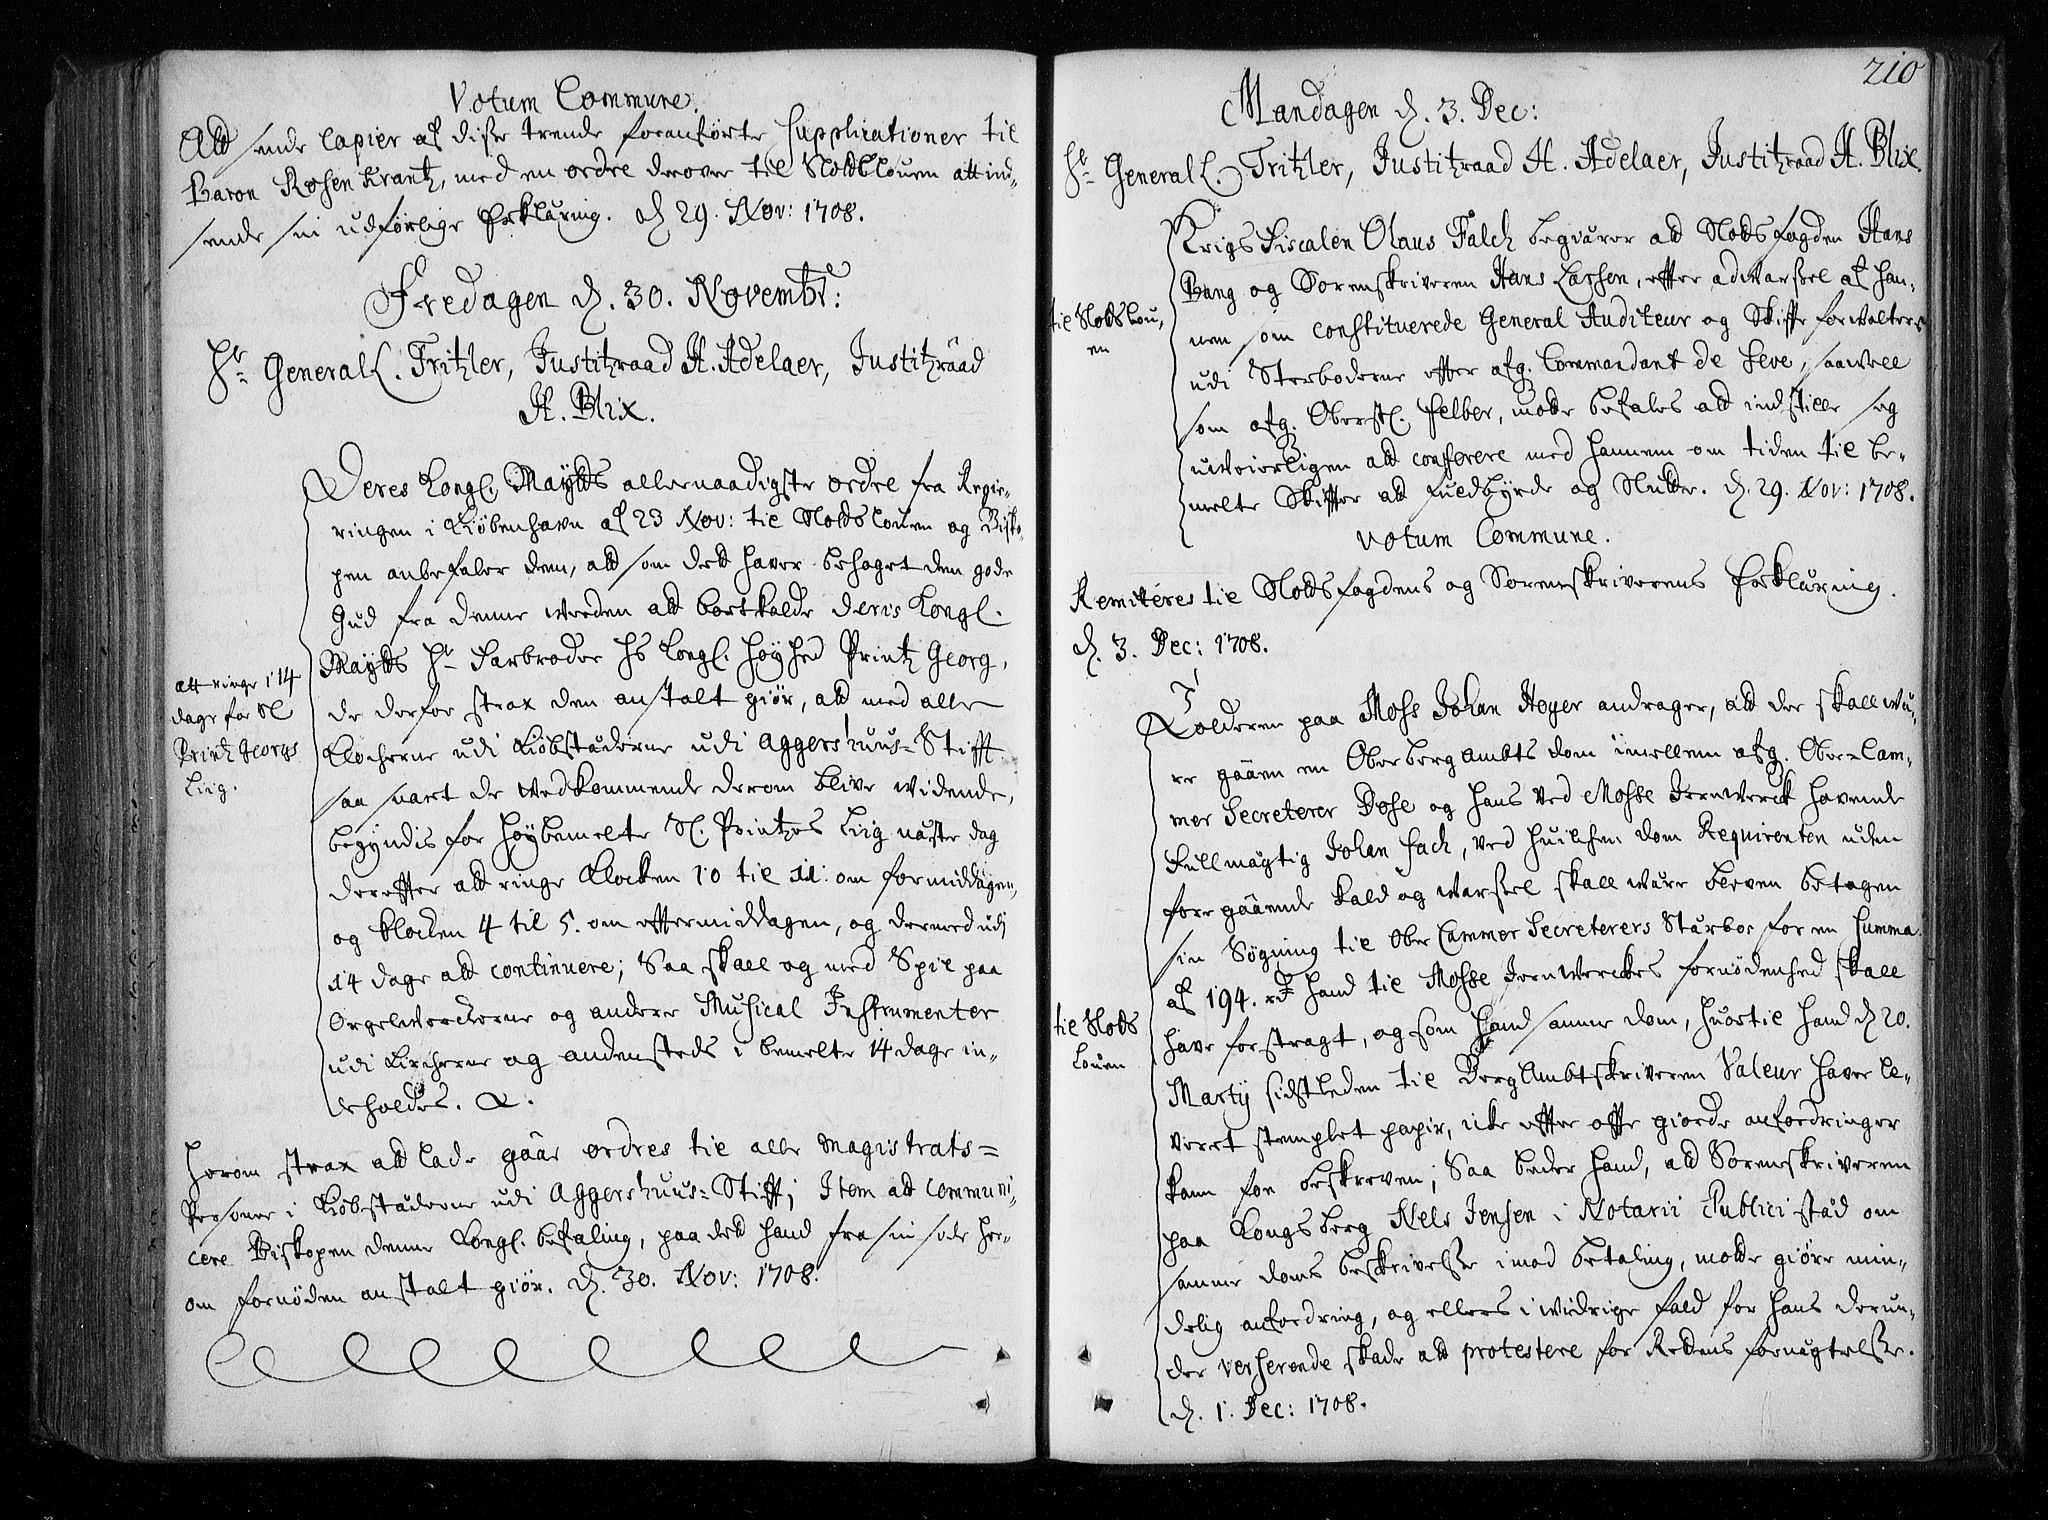 Votum Commune.
Att sende Copier af disse trende foranførte Supplicationer til
Baron Rosenkrantz, med en ordre derover til Slodtslouen att ind-
sende sin udførlige Erklæring. d. 29. Nov: 1708.
Fredagen d. 30. Novembr:
Hr. General L. Tritzler, Justitzraad H. Adelaer, Justitzraad
H. Blix.
Deres Kongl. Mayts allernaadigste ordre fra Regie-
ringen i Kiøbenhavn af 23 Nov: til Slodtslouen og Bisko-
pen anbefaler dem, att som dett haver behaget den gode
Gud fra denne werden att bortkalde Deris Kongl.
Mayts Hr. Farbroder Hs Kongl. Høyhed Printz Georg,
de derfor strax den anstalt giør, att med alle
Klocherne udi Kiøbstæderne udi Aggershuus-Stifft
saa snart de wedkommende derom blive widende,
begyndis for høybemelte Sl. Printzes Liig næste dag
dereffter att ringe Klocken 10 til 11. om formiddagen,
og klocken 4 til 5. om efftermiddagen, og dermed udj
14 dage att continuere; Saa skall og med Spil paa
Orgelwerckerne og andere Musical Instrumenter
udi Kircherne og andensteds i bemelte 14 dage in-
deholdes. &.
att ringe i 14
dage for Sl
Printz Georgs
Liig.
Herom strax att lade gaae ordres til alle Magistrats-
Persooner i Kiøbstæderne udi Aggershuus-Stifft; Item att communi-
cere Biskopen denne Kongl. befaling, paa dett hand fra sin side her-
om fornøden anstalt giør. d. 30. Nov: 1708.
210
Mandagen d. 3. Dec:
Hr. General L. Tritzler, Justitzraad H. Adelaer, Justitzraad H. Blix.
Krigs Fiscalen Olaus Falch begiærer att Slodtsfogden Hans
Bang og Sorenskriveren Hans Lassen, effter adwarsel af han-
nem som constituerede General Auditeur og Skiffte forwalter
udi Sterboderne effter afg. Commandant de Seve, saawell
som afg. Oberstl. Felber, motte befales att indstille sig
uweierligen att conferere med hannem om tiden til be-
melte Skiffter att fuldbyrde og Slutte. d. 29. Nov: 1708.
til Slodtslou,
en
Votum Commune.
Remiteres til Slodtsfogdens og Sorenskriverens Erklæring.
d. 3. Dec: 1708.
Tolderen paa Moss Johan Høyer andrager, att der skall wæ-
re gaaen en Oberbergambts dom imellem afg. Ober-Cam-
mer Secreterer Dose og hans ved Mosse Jernwerck havende
Fullmægtig Johan Fach, ved huilchen dom Requirenten uden
foregaaende kald og warsel skall wære bleven betagen
sin Søgning til Ober Cammer Secreterers Stærboe for en Summa
af 194. rd hand til Mosse Jernwerckes fornødenhed skall
have forstragt, og som hand samme dom, huortil hand d. 20.
Martij sidstleden til Berg Ambtskriveren Valeur haver le-
veret stemplet papir, icke effter offte giorde anfordringer
kann for beskreven; Saa beder hand, att Sorenskriveren
paa Kongsberg Nels Jensen i Notarii Publici stæd om
samme doms beskrivelse imod betaling, motte giøre min-
delig anfordring, og ellers i widrige fald for hans derun-
der verserende skade att protestere for Rettens fornægtelse.
d. 1. Dec: 1708.
til Slods
Louen